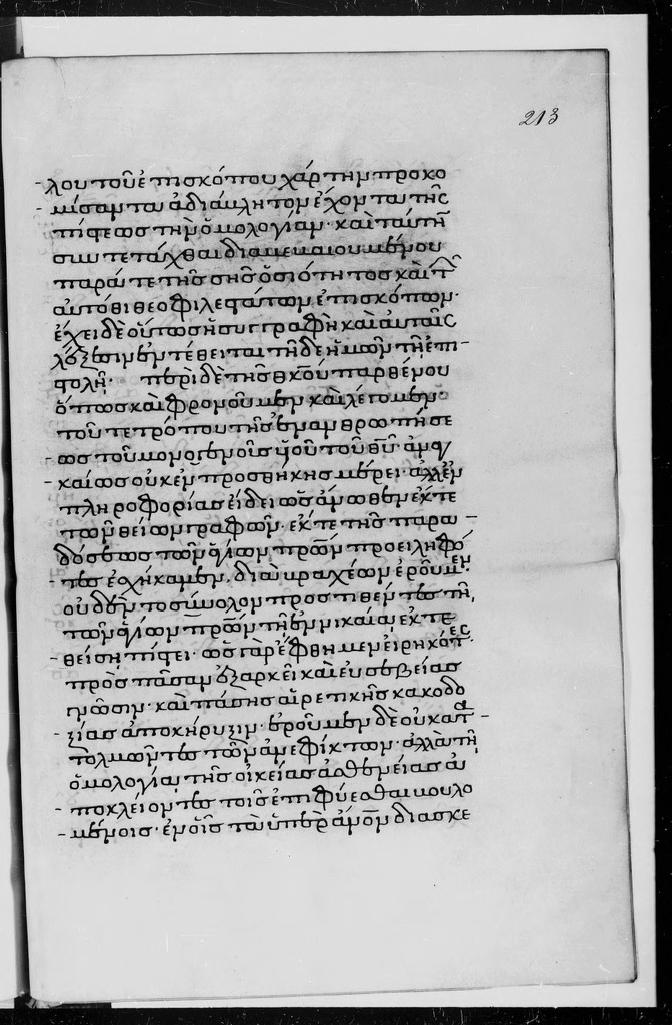 213
λου τοῦ ἐπισκόπου χάρτην προκο
μίσαντα ἀδιάβλητον ἔχοντα τῆς
πίστεως τὴν ὁμολογίαν· καὶ ταύτη
συντετάχθαι διαβεβαιουμένου
παρά τε τῆς σῆς ὁσιότητος καὶ τῶν
αὐτόθι θεοφιλεστάτων ἐπισκόπων·
ἔχει δὲ οὕτως ἡ συγγραφὴ καὶ αὐταῖς
λέξεσιν ἐντέθειται τῆδε ἡμῶν τῆ ἐπι
στολῆ· περὶ δὲ τῆς θκου παρθένου
ὅπως καὶ φρονοῦμεν καὶ λέγομεν·
τοῦ τε τρόπου τῆς ἐνανθρωπήσε
ως τοῦ μονογενοῦς υἱοῦ τοῦ θυ· ἀναγ
καίως οὐκ ἐν προσθήκης μέρει· ἀλλ' ἐν
πληροφορίας εἴδει ὡς ἄνωθεν ἔκ τε
τῶν θείων γραφῶν· ἔκ τε τῆς παρα
δόσεως τῶν ἁγίων πρων προειληφό
τες ἐσχήκαμεν, διὰ βραχέων ἐροῦμεν
οὐδὲν τὸ σύνολον προστιθέντες τῆ
τῶν ἁγίων πρων τῆ ἐν νικαία ἐκτε
θείση πίστει· ὡς γὰρ ἔφθημεν εἰρηκότες
πρὸς πᾶσαν ἐξαρκεῖ καὶ εὐσεβείας
γνῶσιν· καὶ πάσης αἱρετικῆς κακοδο
ξίας ἀποκήρυξιν· ἐροῦμεν δὲ οὐ κατα
τολμῶντες τῶν ἀνεφίκτων· ἀλλὰ τῆ
ὁμολογία τῆς οἰκείας ἀσθενείας ἀ
ποκλείοντες τοῖς ἐπιφύεσθαι βουλο
μένοις· ἐν οἷς τὰ ὑπὲρ ἄνον διασκε